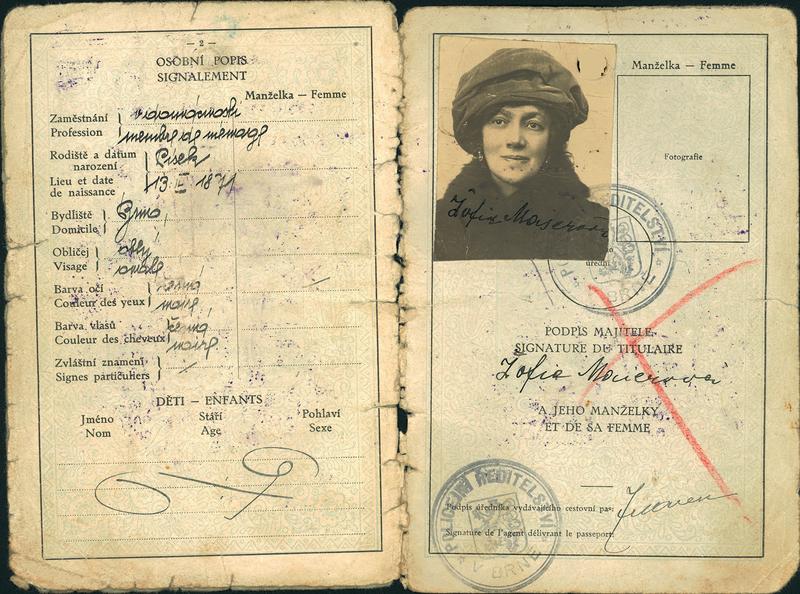 — 2 —
OSOBNÍ POPIS
SIGNALEMENT
Manželka — Femme
Zaměstnání
Profession
v domácnosti
membre de ménage
Rodiště a datum
narození
Lieu et date
de naissance
Písek
13 II 1871
Bydliště
Domicile
Brno
Obličej
Visage
oblý
ovale
Barva očí
Couleur des yeux
černá
noire
Barva vlasů
Couleur des cheveux
černá
noire
Zvláštní znamení
Signes particuliers
DĚTI — ENFANTS
Jméno
Nom
Stáří
Age
Pohlaví
Sexe
Manželka — Femme
Fotografie
Žofie Maierová
ŘEDITELSTVÍ
V BRNĚ
úřední
PODPIS MAJITELE
SIGNATURE DU TITULAIRE
Žofie Maierova
A JEHO MANŽELKY
ET DE SA FEMME
POLICEJNÍ ŘEDITELSTVÍ
V BRNĚ
Podpis úředníka vydávajícího cestovní pas:
Signature de l'agent délivrant le passeport: